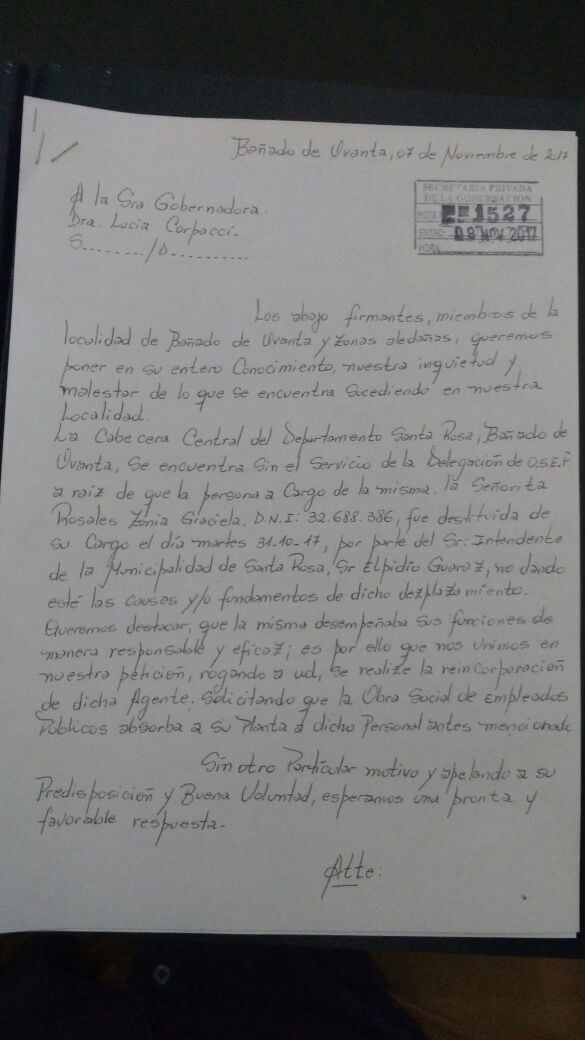 Bañado de Ovanta, 07 de Noviembre de 2017
SECRETARIA PRIVADA
DE LA GOBERNACION
NOTA 1527
ENTRO: 09 NOV 2017
HORA:
A la Sra Gobernadora.
Dra: Lucia Corpacci.
S......../D..........
Los abajo firmantes, miembros de la
localidad de Bañado de Ovanta y zonas aledañas, queremos
poner en su entero Conocimiento, nuestra inquietud y
malestar de lo que se encuentra sucediendo en nuestra
Localidad.
La Cabecera Central del Departamento Santa Rosa, Bañado de
Ovanta, se encuentra sin el servicio de la Delegación de O.S.E.P
a raiz de que la persona a Cargo de la misma, la Señorita
Rosales Zonia Graciela, D.N.I: 32.688.386, fue destituida de
su Cargo el día martes 31-10-17, por parte del Sr: Intendente
de la Municipalidad de Santa Rosa, Sr Elpidio Guaraz, no dando
esté las causas y/o fundamentos de dicho dezplazamiento.
Queremos destacar, que la misma desempeñaba sus funciones de
manera responsable y eficaz; es por ello que nos unimos en
nuestra petición, rogando a ud, se realize la reincorporación
de dicha Agente. Solicitando que la Obra Social de Empleados
Públicos absorba a su Planta a dicho Personal antes mencionado
Sin otro Particular motivo y apelando a su
Predisposición y Buena Voluntad, esperamos una pronta y
favorable respuesta.-
Atte: